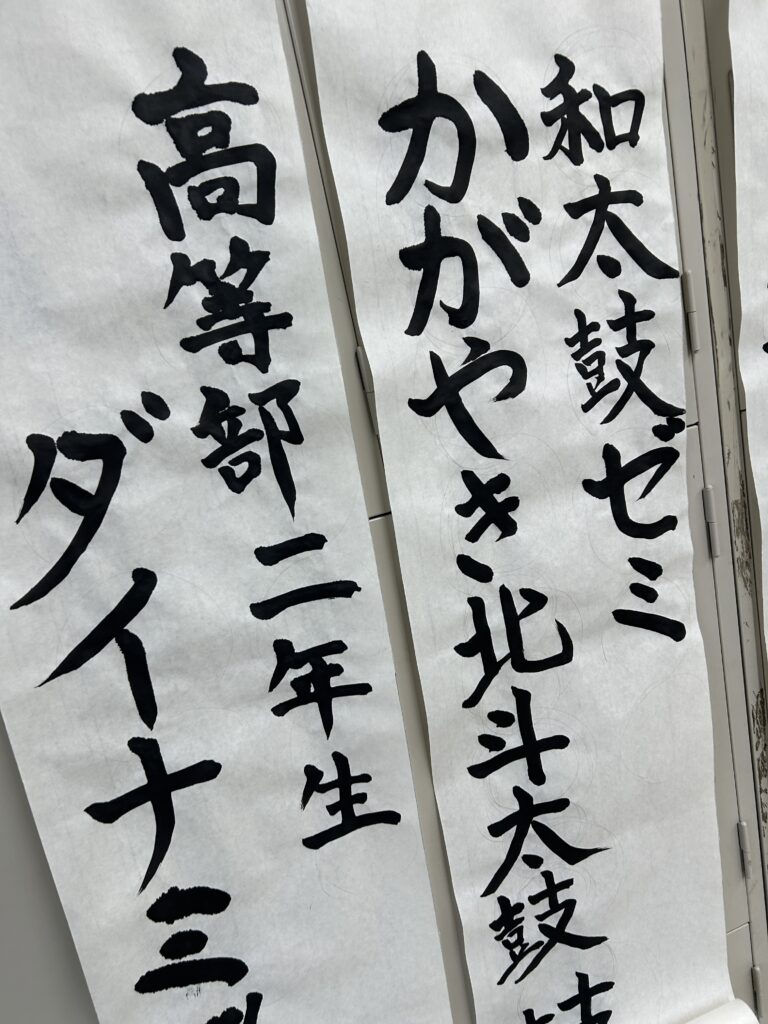 和太鼓ゼミ
かがやき北斗太鼓
高等部二年生
ダイナミ